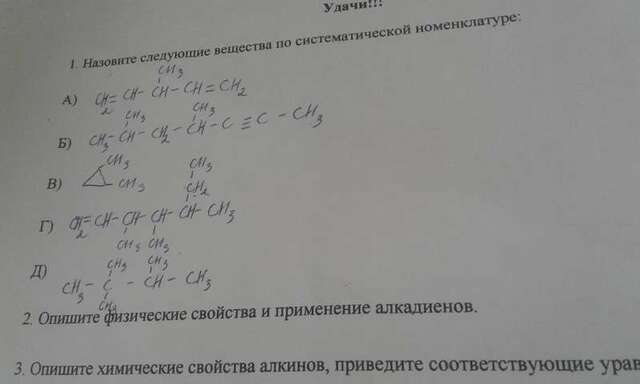 Удачи!!!
1. Назовите следующие вещества по систематической номенклатуре:
CH3
А) CH2=CH-CH-CH=CH2
CH3 CH3
Б) CH3-CH-CH2-CH-C≡C-CH3
CH3
В) CH3
CH3
CH2
Г) CH2=CH-CH-CH-CH-CH3
CH3 CH3
Д) CH3 CH3
CH3-C-CH-CH3
CH3
2. Опишите физические свойства и применение алкадиенов.
3. Опишите химические свойства алкинов, приведите соответствующие